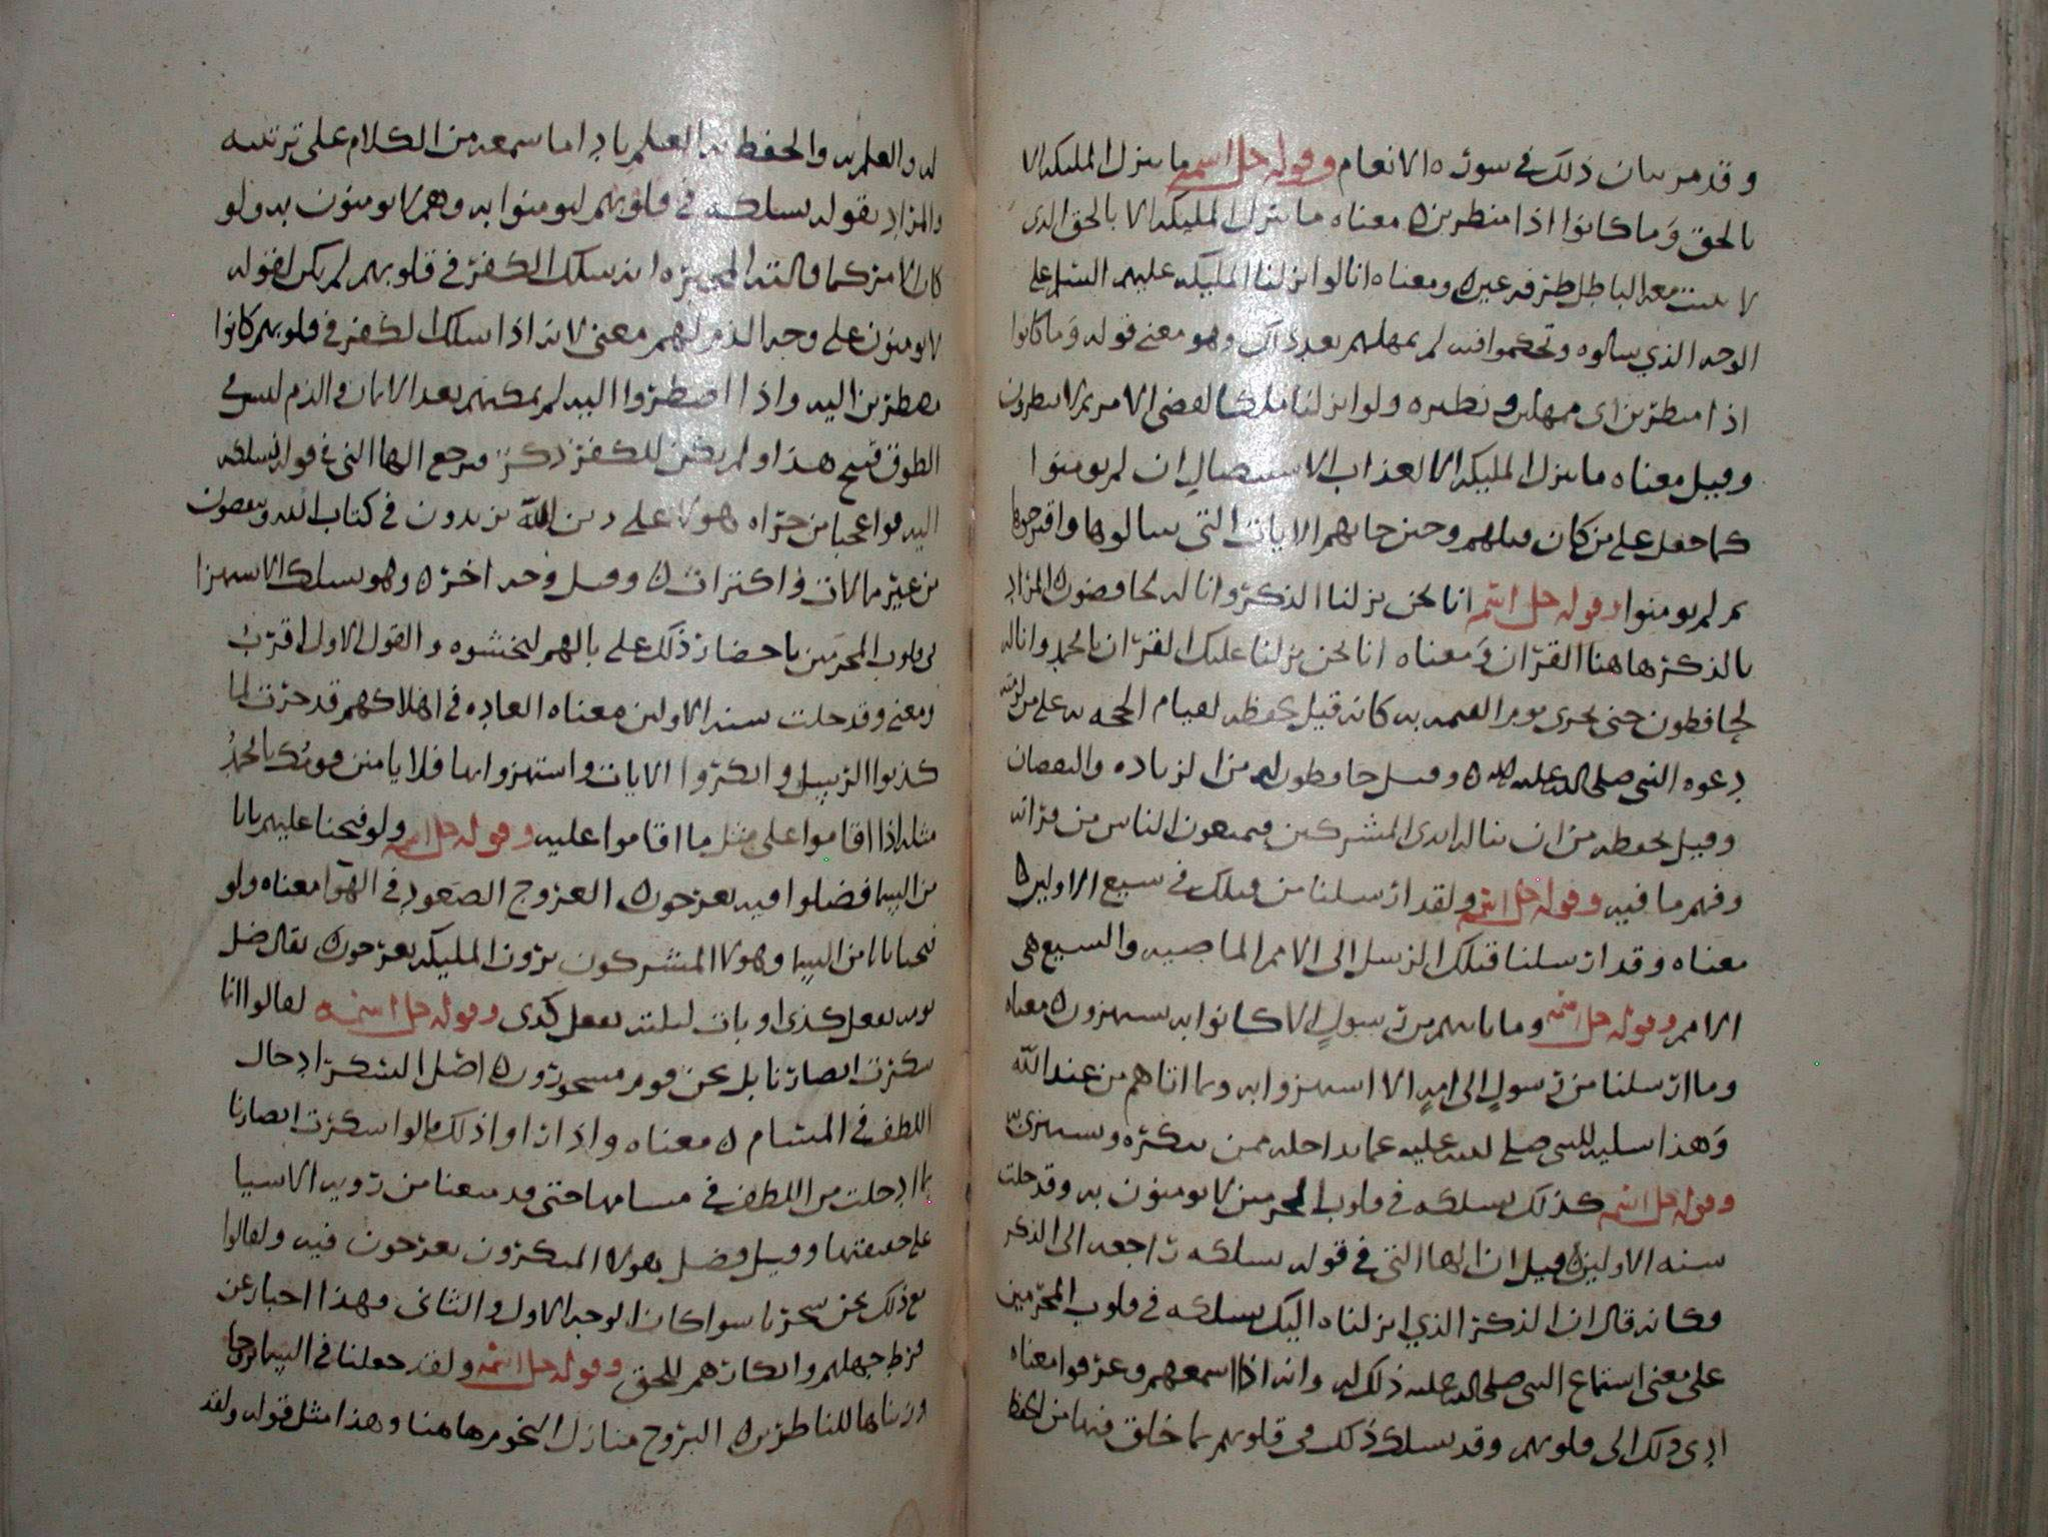 وقد مر بيان ذلك في سورة الانعام وقوله جل اسمه ما ننزل المليكة الا
بالحق وما كانوا اذا منظرين معناه ما ننزل المليكة الا بالحق الذي
لا يلبث معه الباطل طرفة عين ومعناه انا لو انزلنا المليكة عليهم السلم على
الوجه الذي سالوه وتحكموا فيه لم يمهلهم بعد ذلك وهو معنى قوله وما كانوا
اذا منظرين اي ممهلين ونظيره ولو انزلنا ملكا لقضي الامر ثم لا ينظرون
وقيل معناه ما ننزل المليكة الا لعذاب الاستيصال ان لم يومنوا
كما فعل على من كان قبلهم وحين جاتهم الايات التي سالوها واقترحوها
ثم لم يومنوا وقوله جل اسمه انا نحن نزلنا الذكر وانا له لحافضون المراد
بالذكر هاهنا القران ومعناه انا نحن نزلنا عليك القران يا محمد وانا له
لحافظون حتى يجري يوم القيمه به كانه قيل يحفظه لقيام الحجه به على من لزمته
دعوه النبي صلى الله عليه وقيل حافظون له من الزياده والنقصان
وقيل يحفظه من ان تناله ايدي المشركين فيمنعون الناس من قراته
وفهم ما فيه وقوله جل اسمه ولقد ارسلنا من قبلك في شيع الاولين
معناه وقد ارسلنا قبلك الرسل الى الامم الماضيه والشيع هي
الامم وقوله جل اسمه وما ياتيهم من رسول الا كانوا به يستهزون معناه
وما ارسلنا من رسول الى امة الا استهزوا به وبما اتاهم من عند الله
وهذا تسليه للنبي صلى الله عليه عما يداخله ممن ينكره ويستهزئ
وقوله جل اسمه كذلك نسلكه في قلوب المجرمين لا يومنون به وقد خلت
سنه الاولين قيل ان الها التي في قوله نسلكه راجعه الى الذكر
فكانه قال ان الذكر الذي انزلناه اليك نسلكه في قلوب المجرمين
على معنى استماع النبي صلى الله عليه ذلك له وانه اذا اسمعهم وعرفوا معناه
ادي ذلك الى قلوبهم وقد نسلك ذلك في قلوبهم بما خلق فيها من الحفظ
له والعلم به والحفظ به العلم باداما سمعه من الكلام على ترتيبه
والمراد بقوله نسلكه في قلوبهم ليومنوا به وهم لا يومنون به ولو
كان الامر كما قالته المجبره انه سلك الكفر في قلوبهم لم يكن لقوله
لا يومنون على وجه الذم لهم معنى لانه اذا سلك الكفر في قلوبهم كانوا
مضطرين اليه واذا اضطروا اليه لم يمكنهم بعد الايمان والذم ليس في
الطوق قبيح هذا ولم يكن للكفر ذكر فيرجع الها التي في قوله نسلكه
اليه فواعجبا من جراه هولا على دين الله يزيدون في كتاب الله وينقصون
من غير مبالات واكتراث وقيل وجه اخر وهو نسلك الاستهزا
في قلوب المجرمين باحضار ذلك على بالهم ليخشوه والقول الاول اقرب
ومعنى وقد خلت سنه الاولين معناه العاده في اهلاكهم قد جرت لما
كذبوا الرسل وانكروا الايات واستهزوا بها فلا يامنن قومك يا محمد
مثله اذا اقاموا على مثل ما اقاموا عليه وقوله جل اسمه ولو فتحنا عليهم بابا
من السما فضلوا فيه يعرجون العروج الصعود في الهوا معناه ولو
فتحنا بابا من السما وهولا المشركون يرون المليكة يعرجون يقال ضل
يومه يفعل كذى او بات ليلته يفعل كذى وقوله جل اسمه لقالوا انما
سكرت ابصارنا بل نحن قوم مسحورون اصل السكر ادخال
اللطف في المسام معناه واذا راوا ذلك قالوا سكرت ابصارنا
بما ادخلت من اللطف في مسامها حتى قد منعنا من رويه الاشيا
على حقيقتها وقيل فضل هولا المنكرون يعرجون فيه ولقالوا
مع ذلك نحن سحرنا سوا كان الوجه الاول والثاني فهذا اخبار عن
فرط جهلهم وانكارهم للحق وقوله جل اسمه ولقد جعلنا في السما بروجا
وزيناها للناظرين البروج منازل النجوم هاهنا وهذا مثل قوله ولقد